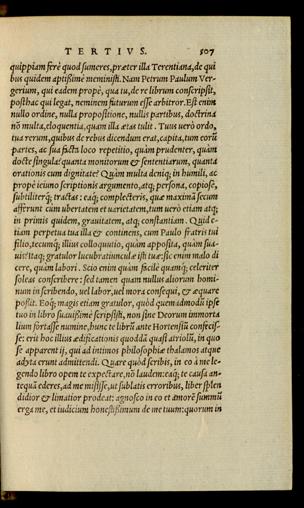 TERTIVS. 507
quippiam ferè quod sumeres, præter illa Terentiana, de qui
bus quidem aptißimè meministi. Nam Petrum Paulum Ver-
gerium, qui eadem propè, qua tu, de re librum conscripsit,
posthac qui legat, neminem futurum esse arbitror. Est enim
nullo ordine, nulla propositione, nullis partibus, doctrina
nõ multa, eloquentia, quam illa ætas tulit. Tuus uerò ordo,
tua rerum, quibus de rebus dicendum erat, capita, tum eorũ
partes, ac sua facta loco repetitio, quàm prudenter, quàm
docte singula? quanta monitorum & sententiarum, quanta
orationis cum dignitate? Quàm multa deniq; in humili, ac
propè iciuno scriptionis argumento, atq; persona, copiosè,
subtiliterq; tractas: eaq; complecteris, quæ maximã secum
afferunt cum ubertatem et uarietatem, tum uerò etiam atq;
in primis quidem, grauitatem, atq; constantiam. Quid e-
tiam perpetua tua illa & continens, cum Paulo fratris tui
filio, tecumq; illius colloquutio, quàm apposita, quàm sua-
uis? Itaq; gratulor lucubratiunculæ isti tuæ: sic enim malo di
cere, quàm labori. Scio enim quàm facile quamq; celeriter
soleas conscribere: sed tamen quam nullus aliorum homi-
num in scribendo, uel labor, uel mora consequi, & æquare
poßit. Eoq; magis etiam gratulor, quòd quem admodũ ipse
tuo in libro suauißimè scripsisti, non sine Deorum immorta
lium fortasse numine, hunc te librũ ante Hortensiũ confecis-
se: erit hoc illius ædificationis quoddã quasi atriolũ, in quo
se apparent ij, qui ad intimos philosophiæ thalamos atque
adyta erunt admittendi. Quare quòd scribis, in eo à me le-
gendo libro opem te expectare, nõ laudem: eaq; te causa an-
tequã ederes, ad me misisse, ut sublatis erroribus, liber splen
didior & limatior prodeat: agnosco in eo et amorẽ summũ
erga me, et iudicium honestißimum de me tuum: quorum in